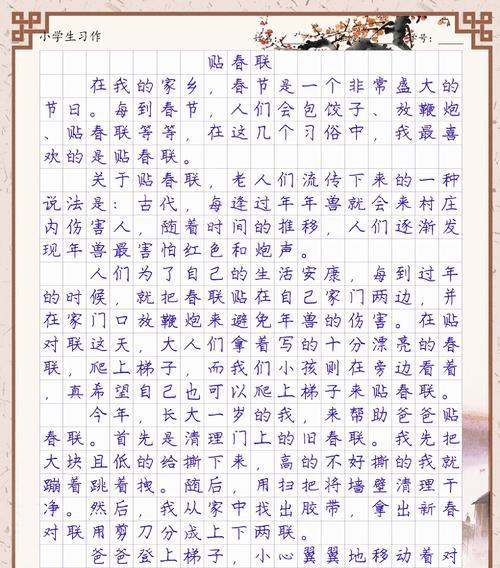 小学生习作
学号：
贴春联
在我的家乡，春节是一个非常盛大的
节日。每到春节，人们会包饺子、放鞭炮
、贴春联等等，在这几个习俗中，我最喜
欢的是贴春联。
关于贴春联，老人们流传下来的一种
说法是：古代，每逢过年年兽就会来村庄
内伤害人，随着时间的推移，人们逐渐发
现年兽最害怕红色和炮声。
人们为了自己的生活安康，每到过年
的时候，就把春联贴在自己家门两边，并
在家门口放鞭炮来避免年兽的伤害。在贴
对联这天，大人们拿着写的十分漂亮的春
联，爬上梯子，而我们小孩则在旁边看着
，真希望自己也可以爬上梯子来贴春联。
今年，长大一岁的我，来帮助爸爸贴
春联。首先是清理门上的旧春联。我先把
大块且低的给撕下来，高的不好撕的我就
蹦着跳着拽。随后，用扫把将墙壁清理干
净。然后，我从家中找出胶带，拿出新春
对联用剪刀分成上下两联。
爸爸登上梯子，小心翼翼地移动着对